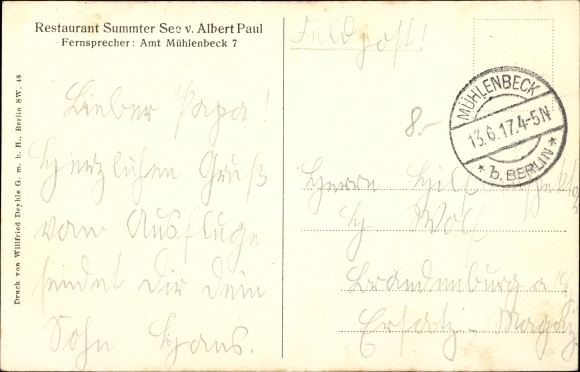 Restaurant Summter See v. Albert Paul
Fernsprecher: Amt Mühlenbeck 7
Druck von Willfried Deyhle G. m. b. H., Berlin SW. 48
Feldpost!
MÜHLENBECK
13.6.17.4-5N
* b. BERLIN *
8.-
Lieber Papa!
Herzlichen Gruß
vom Ausfluge
sendet Dir dein
Sohn Hans.
Herrn
H Wolf
Brandenburg a
Ersatz-Magaz